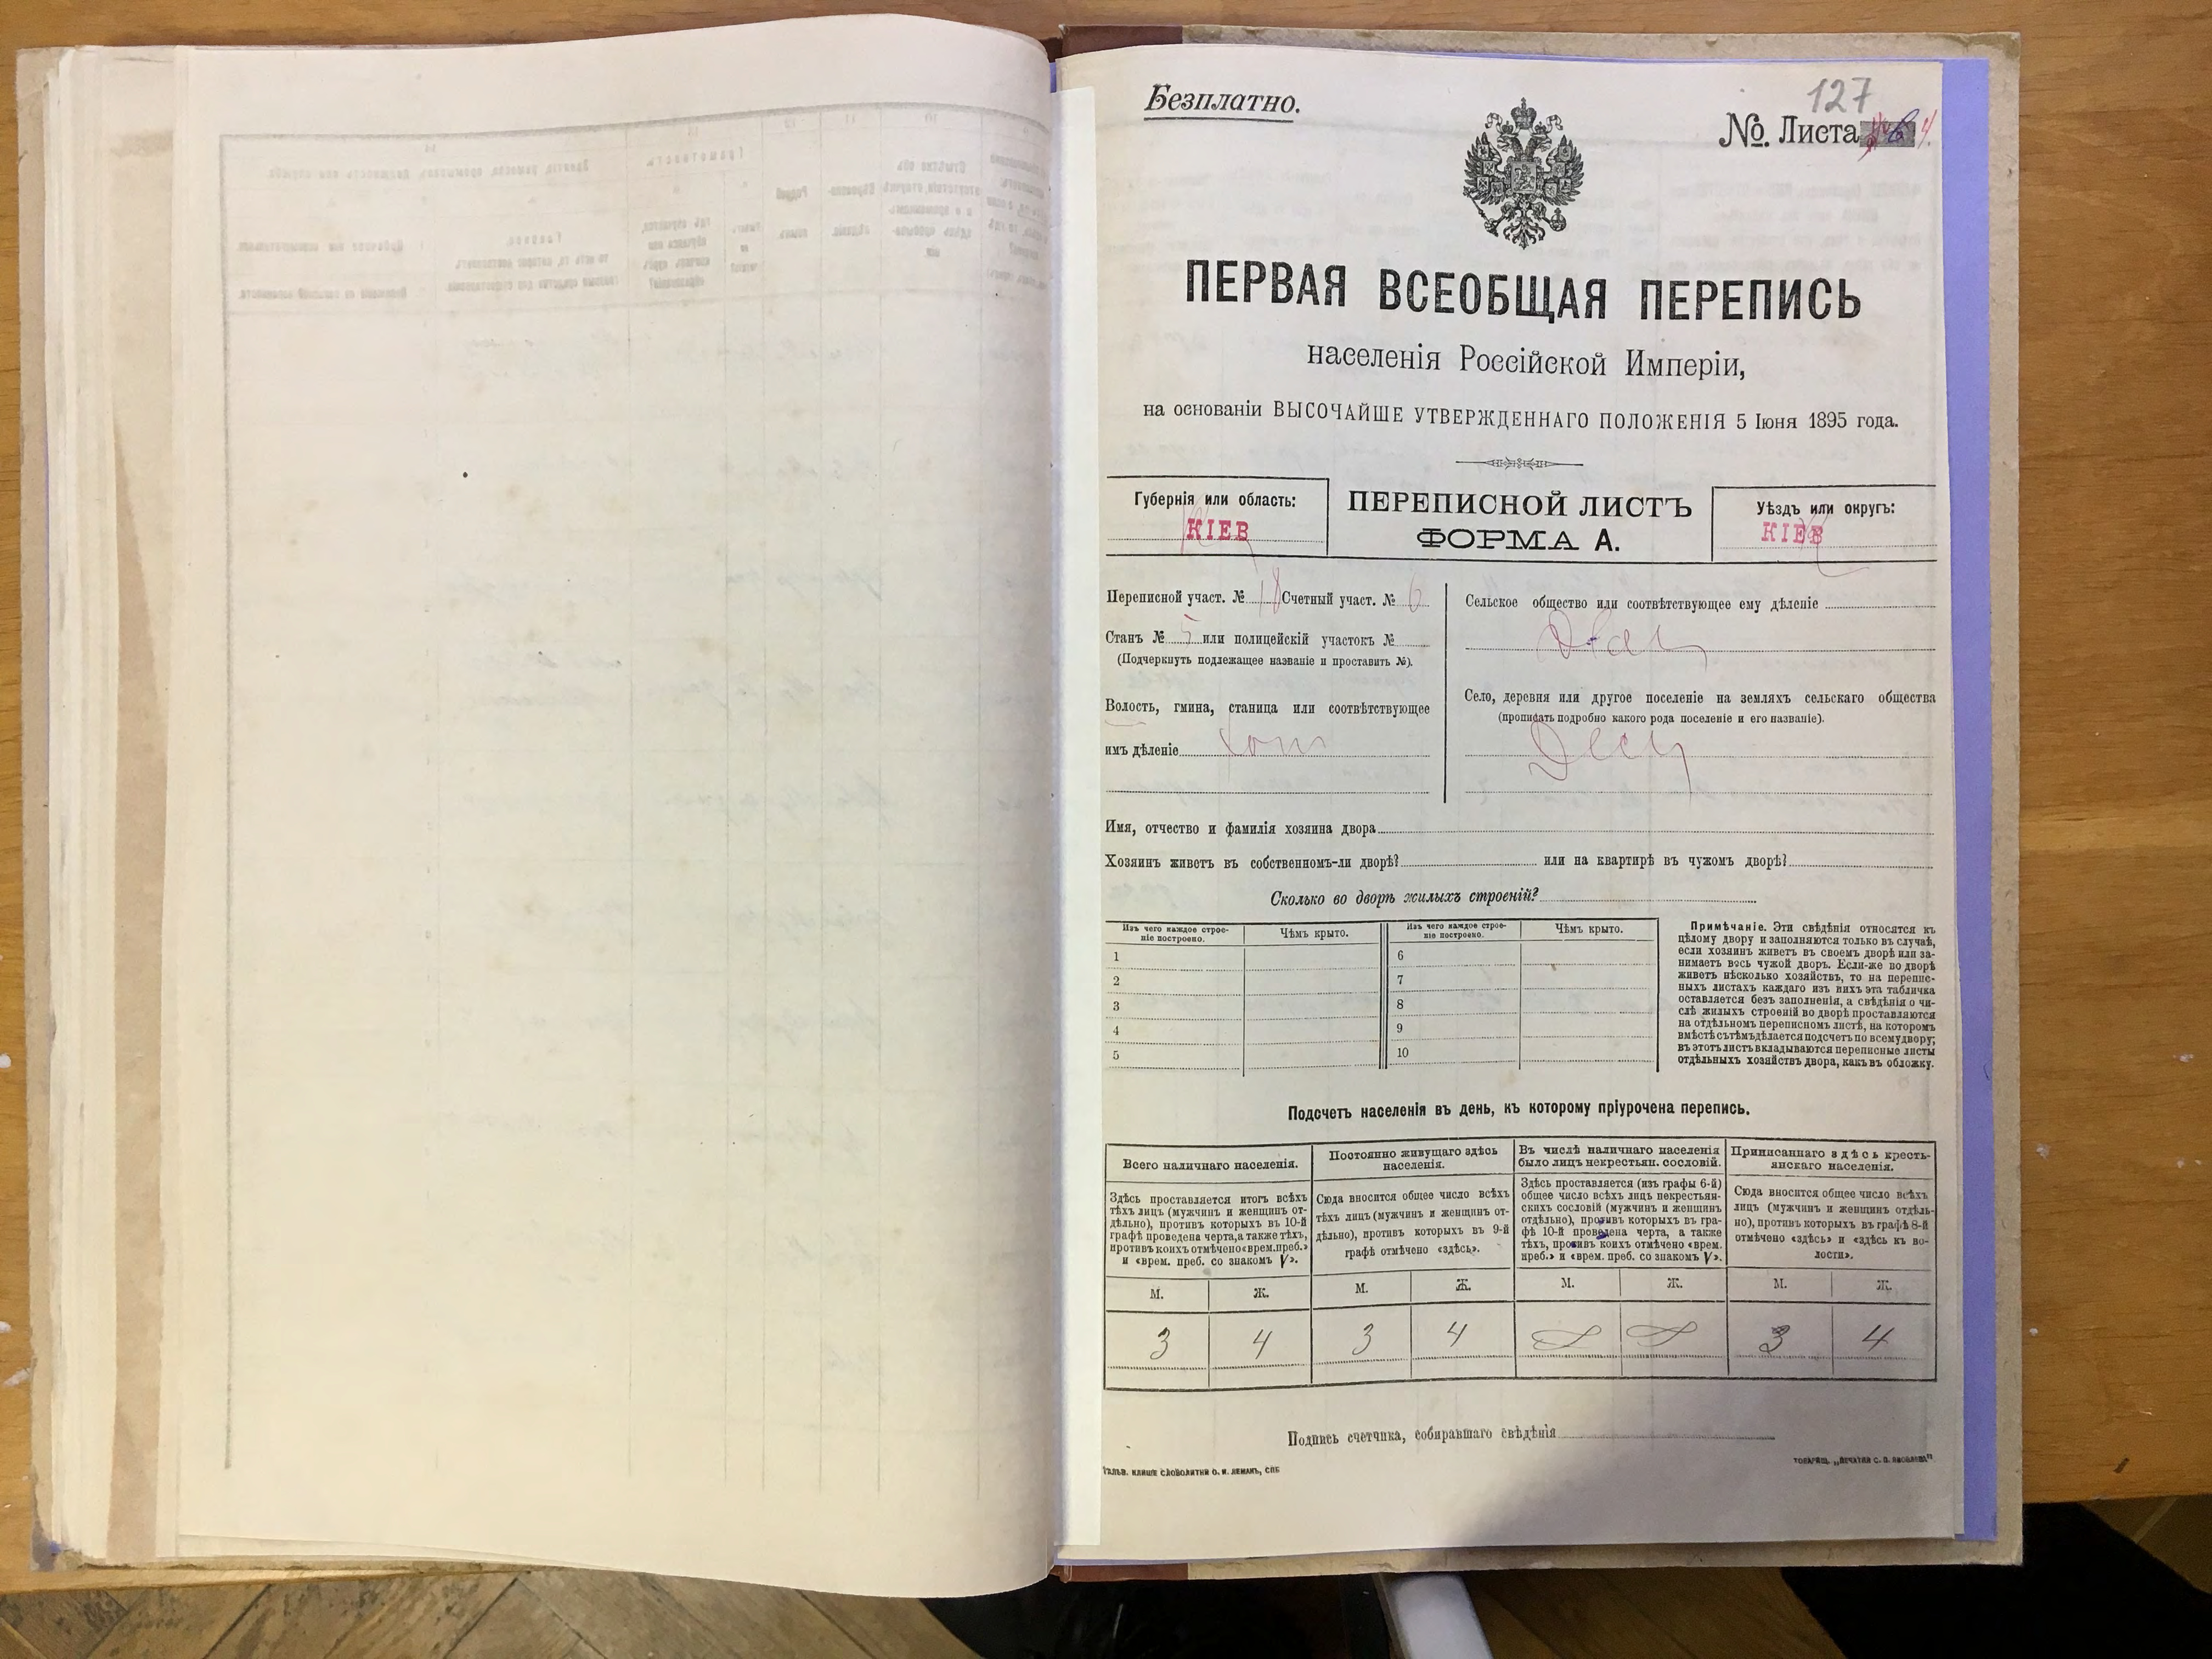 Безплатно.
127
№. Листа
ПЕРВАЯ ВСЕОБЩАЯ ПЕРЕПИСЬ
населенія Россійской Имперіи,
на основаніи ВЫСОЧАЙШЕ УТВЕРЖДЕННАГО ПОЛОЖЕНІЯ 5 Іюня 1895 года.
Губернія или область:
КІЕВ
ПЕРЕПИСНОЙ ЛИСТЪ
ФОРМА А.
Уѣздъ или округъ:
КІЕВ
Переписной участ. № 18 Счетный участ. № 6
Станъ № 5 или полицейскій участокъ №
(Подчеркнуть подлежащее названіе и проставить №).
Волость, гмина, станица или соотвѣтствующее
имъ дѣленіе
Сельское общество или соотвѣтствующее ему дѣленіе
Село, деревня или другое поселеніе на земляхъ сельскаго общества
(прописать подробно какого рода поселеніе и его названіе).
Имя, отчество и фамилія хозяина двора
Хозяинъ живетъ въ собственномъ-ли дворѣ? или на квартирѣ въ чужомъ дворѣ?
Сколько во дворѣ жилыхъ строеній?
Изъ чего каждое строе-
ніе построено.
Чѣмъ крыто.
Изъ чего каждое строе-
ніе построено.
Чѣмъ крыто.
1 6
2 7
3 8
4 9
5 10
Примѣчаніе. Эти свѣдѣнія относятся къ
цѣлому двору и заполняются только въ случаѣ,
если хозяинъ живетъ въ своемъ дворѣ или за-
нимаетъ весь чужой дворъ. Если-же во дворѣ
живетъ нѣсколько хозяйствъ, то на перепис-
ныхъ листахъ каждаго изъ нихъ эта табличка
оставляется безъ заполненія, а свѣдѣнія о чи-
слѣ жилыхъ строеній во дворѣ проставляются
на отдѣльномъ переписномъ листѣ, на которомъ
вмѣстѣ съ тѣмъ дѣлается подсчетъ по всему двору;
въ этотъ листъ вкладываются переписные листы
отдѣльныхъ хозяйствъ двора, какъ въ обложку.
Подсчетъ населенія въ день, къ которому пріурочена перепись.
Всего наличнаго населенія.
Здѣсь проставляется итогъ всѣхъ
тѣхъ лицъ (мужчинъ и женщинъ от-
дѣльно), противъ которыхъ въ 10-й
графѣ проведена черта, а также тѣхъ,
противъ коихъ отмѣчено «врем. преб.»
и «врем. преб. со знакомъ V».
Постоянно живущаго здѣсь
населенія.
Сюда вносится общее число всѣхъ
тѣхъ лицъ (мужчинъ и женщинъ от-
дѣльно), противъ которыхъ въ 9-й
графѣ отмѣчено «здѣсь».
Въ числѣ наличнаго населенія
было лицъ некрестьян. сословій.
Здѣсь проставляется (изъ графы 6-й)
общее число всѣхъ лицъ некрестьян-
скихъ сословій (мужчинъ и женщинъ
отдѣльно), противъ которыхъ въ гра-
фѣ 10-й проведена черта, а также
тѣхъ, противъ коихъ отмѣчено «врем.
преб.» и «врем. преб. со знакомъ V».
Приписаннаго здѣсь кресть-
янскаго населенія.
Сюда вносится общее число всѣхъ
лицъ (мужчинъ и женщинъ отдѣль-
но), противъ которыхъ въ графѣ 8-й
отмѣчено «здѣсь» и «здѣсь къ во-
лости».
М. Ж. М. Ж. М. Ж. М. Ж.
3 4 3 4 3 4
Подпись счетчика, собиравшаго свѣдѣнія
ГАЛЬВ. КЛИШЕ СЛОВОЛИТНИ О. И. ЛЕМАНЪ, СПБ
ТОВАРИЩ. „ПЕЧАТНЯ С. П. ЯКОВЛЕВА“